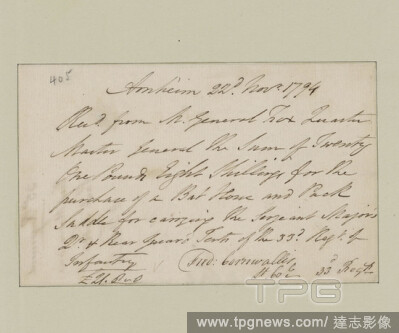 405
Arnheim 22d. Novr. 1794
Recd. from M. General Fox Quarter
Master General the Sum of Twenty
One Pounds Eight Shillings for the
purchase of a Bat Horse and Pack
Saddle for carrying the Serjeant Majors
Qr. & Rear Guard Tents of the 33d. Regt. of
Infantry
Cornwallis
£21. 8. 0
33d Regt.
TPG
www.tpgnews.com / 達志影像